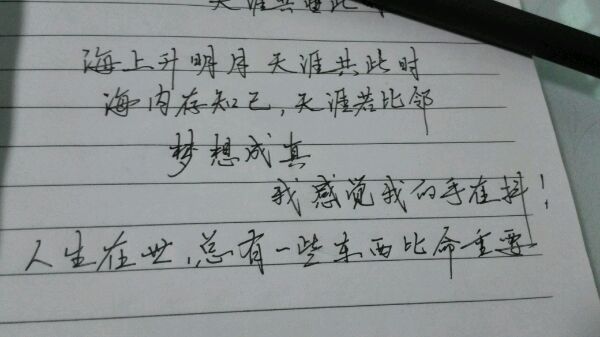 天涯共此时
海上升明月 天涯共此时
海内存知己，天涯若比邻
梦想成真
我感觉我的手在抖！
人生在世，总有一些东西比命重要